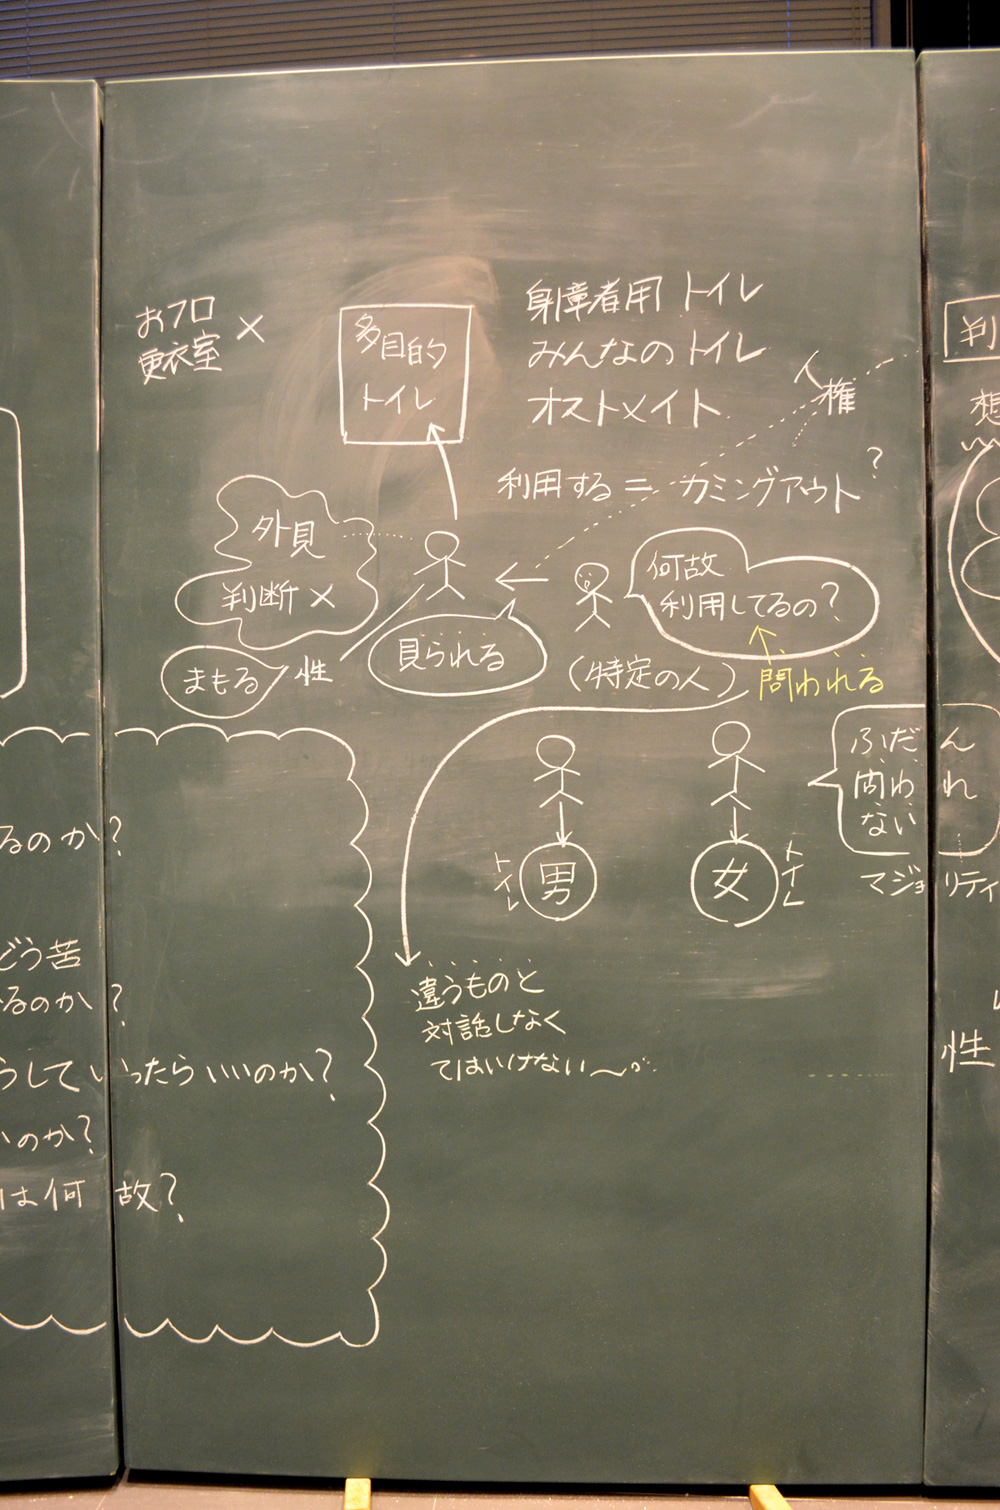 おフロ
更衣室 ×
多目的
トイレ
身障者用 トイレ
みんなのトイレ
オストメイト
人権
利用する = カミングアウト?
外見
判断 ×
まもる
性
見られる
何故
利用してるの?
(特定の人)
問われる
男
トイレ
女
トイレ
ふだん
問われ
ない
マジョリティ
違うものと
対話しなく
てはいけない〜
るのか?
どう苦
るのか?
うしていったらいいのか?
いのか?
は何故?
判
想
性